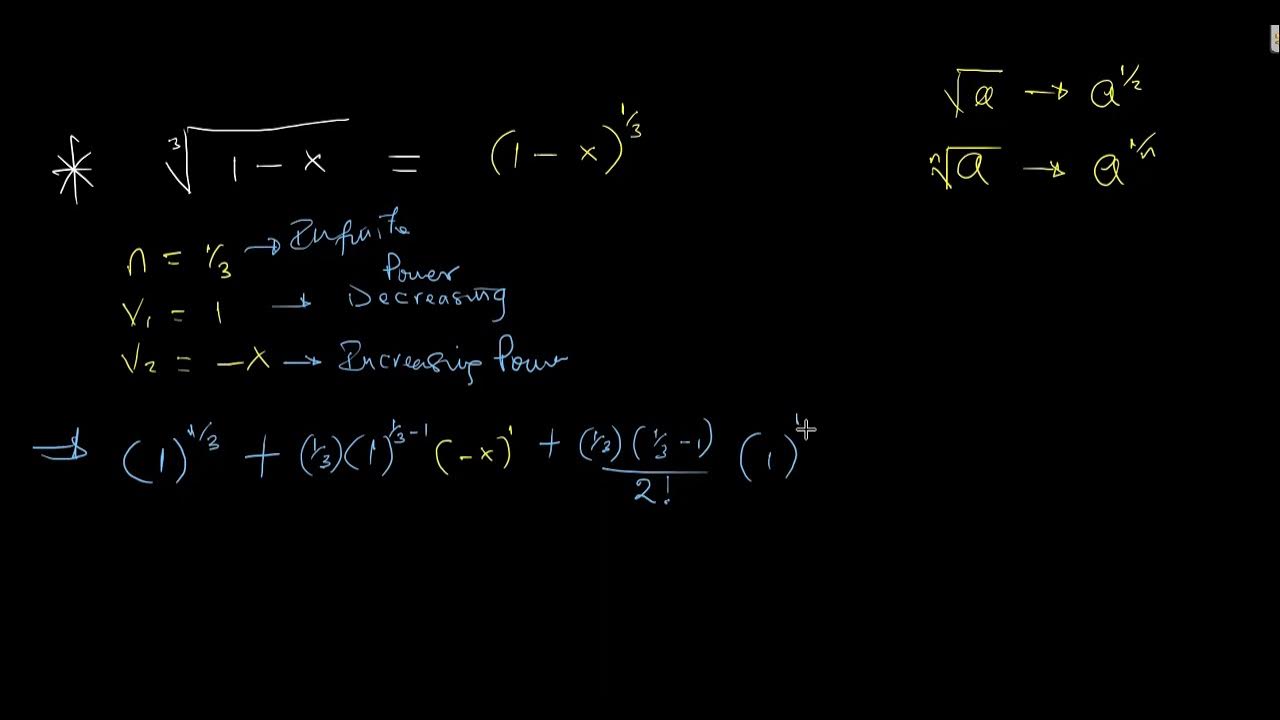 √a → a^1/2
* ∛1 - x = (1 - x)^1/3
ⁿ√a → a^1/n
n = 1/3 → Infinite
Power
V₁ = 1 → Decreasing
V₂ = -x → Increasing Power
→ (1)^1/3 + (1/3)(1)^1/3-1 (-x)^1 + (1/3)(1/3 - 1)/2! (1)^1